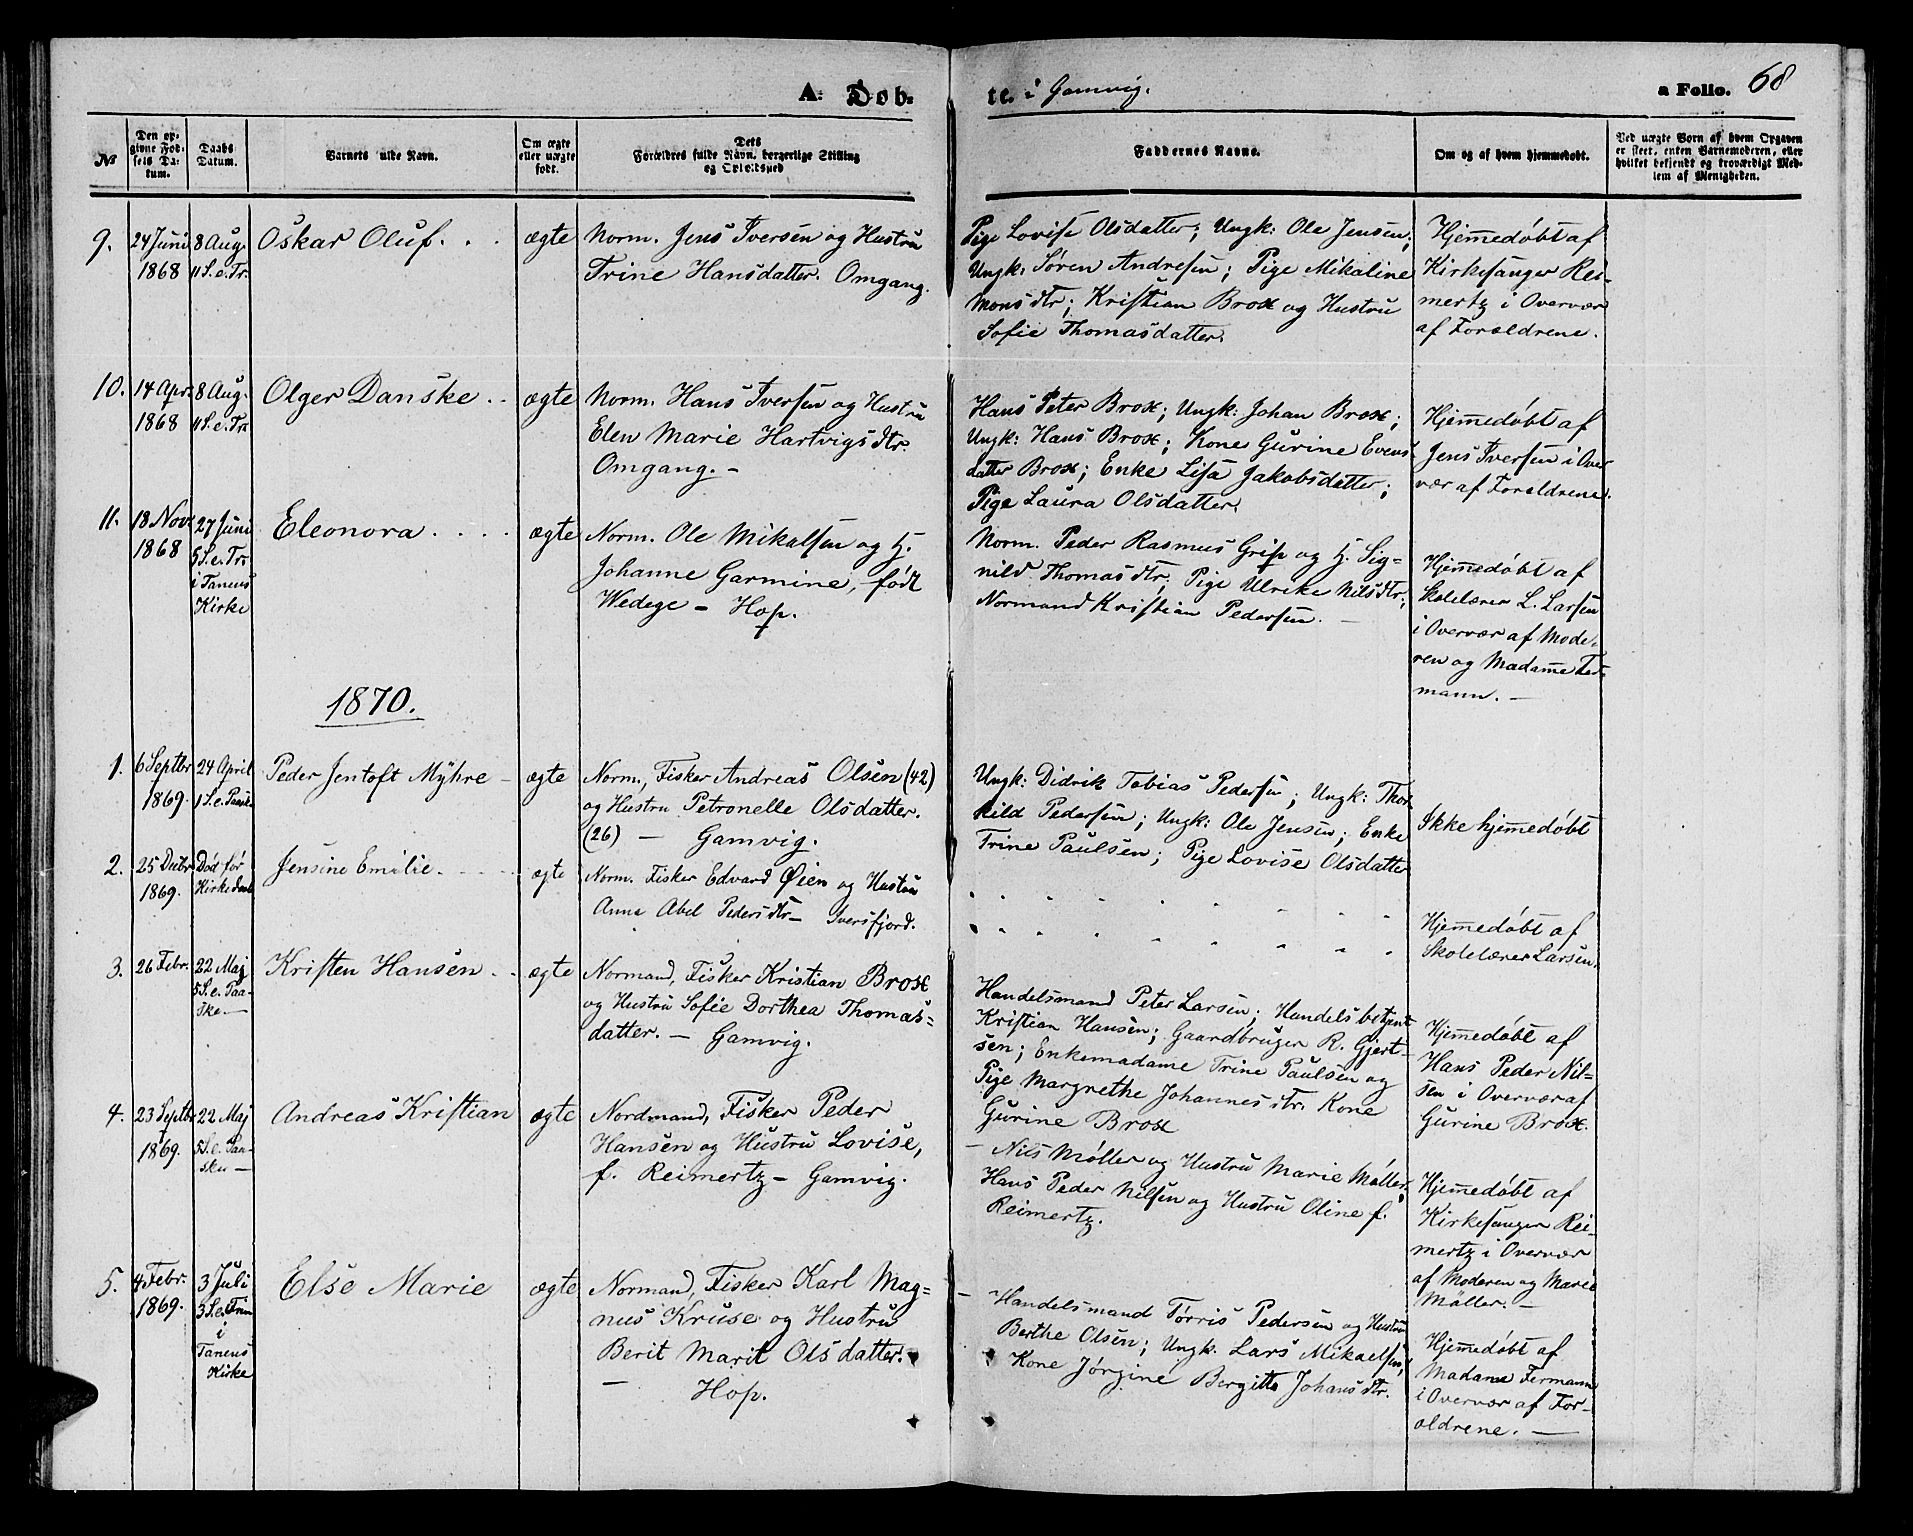 A. Døb-
te. i Gamvig.
a Folio. 68
No
Den op-
givne Fød-
sels Da-
tum.
Daabs
Datum.
Barnets fulde Navn.
Om ægte
eller uægte
født.
Dets
Forældres fulde Navn, borgerlige Stilling
og Opholdssted
Faddernes Navne.
Om og af hvem hjemmedøbt.
Ved uægte Børn af hvem Opgaven
er skeet, enten Barnemoderen, eller
hvilket bekjendt og troværdigt Med-
lem af Menigheden.
9.
24 Juni
1868
8 Aug.
11 S. e. Tr.
Oskar Oluf. . .
ægte
Norm. Jens Iversen og Hustru
Trine Hansdatter. Omgang.
Pige Lovise Olsdatter; Ungk: Ole Jensen;
Ungk: Søren Andresen; Pige Mikaline
Monsdtr; Kristian Brox og Hustru
Sofie Thomasdatter.
Hjemmedøbt af
Kirkesanger Rei-
mertz i Overvær
af Forældrene.
10.
14 Apr.
1868
8 Aug.
11 S. e. Tr.
Olger Danske . .
ægte
Norm. Hans Iversen og Hustru
Elen Marie Hartvigsdtr.
Omgang. –
Hans Peter Brox; Ungk: Johan Brox;
Ungk: Hans Brox; Kone Gurine Evens
datter Brox; Enke Lisa Jakobsdatter;
Pige Laura Olsdatter.
Hjemmedøbt af
Jens Iversen i Over
vær af Forældrene.
11.
18 Nov.
1868
27 Juni
5 S. e. Tr.
i Tanens
Kirke
Eleonora . . . .
ægte
Norm. Ole Mikalsen og H.
Johanne Garmine, født
Wedege – Hop.
Norm. Peder Rasmus Grip og H. Sig-
nild Thomasdtr, Pige Ulrike Nilsdtr;
Normand Kristian Pedersen. –
Hjemmedøbt af
Skolelærer L. Larsen
i Overvær af Mode-
ren og Madame Fer-
mann. –
1870.
1.
6 Septbr
1869.
24 April
1 S. e. Paask.
Peder Jentoft Myhre –
ægte
Norm., Fisker Andreas Olsen (42)
og Hustru Petronelle Olsdatter.
(26) – Gamvig.
Ungk: Didrik Tobias Pedersen; Ungk: Thor-
kild Pedersen; Ungk: Ole Jensen; Enke
Trine Paulsen; Pige Lovise Olsdatter
Ikke hjemmedøbt
2.
25 Decbr
1869.
Død før
Kirkedaab
Jensine Emilie. - - - -
ægte
Norm. Fisker Edvard Øien og Hustru
Anna Abel Pedersdtr – Iversfjord.
Hjemmedøbt af
Skolelærer Larsen.
3.
26 Febr.
22 Maj
5 S. e. Paa-
ske. –
Kristen Hansen . .
ægte
Normand, Fisker Kristian Brox
og Hustru Sofie Dorthea Thomas-
datter. – Gamvig.
Handelsmand Peter Larsen; Handelsbetjent
Kristian Hansen; Gaardbruger R. Gjert-
sen; Enkemadame Trine Paulsen og
Pige Margrethe Johannesdtr. Kone
Gurine Brox
Hjemmedøbt af
Hans Peder Nil-
sen i Overvær af
Gurine Brox.
4.
23 Septbr
1869.
22 Maj
5 S. e. Paa-
ske –
Andreas Kristian
ægte
Nordmand, Fisker Peder
Hansen og Hustru Lovise,
f. Reimertz – Gamvig.
– Nils Møller og Hustru Marie Møller,
Hans Peder Nilsen og Hustru Oline f.
Reimertz.
Hjemmedøbt af
Kirkesanger Rei-
mertz i Overvær
af Moderen og Marie
Møller. –
5.
4 Febr.
1869.
3 Juli
3 S. e. Trin
i
Tanens
Kirke
Else Marie
ægte
Normand, Fisker Karl Mag-
nus Kruse og Hustru
Berit Marit Olsdatter.
– Hop.
– Handelsmand Tørris Pedersen og Hustru
Berthe Olsen; Ungk: Lars Mikaelsen,
Kone Jørgine Bergitte Johansdtr.
Hjemmedøbt af
Madame Fermann
i Overvær af For-
ældrene. –